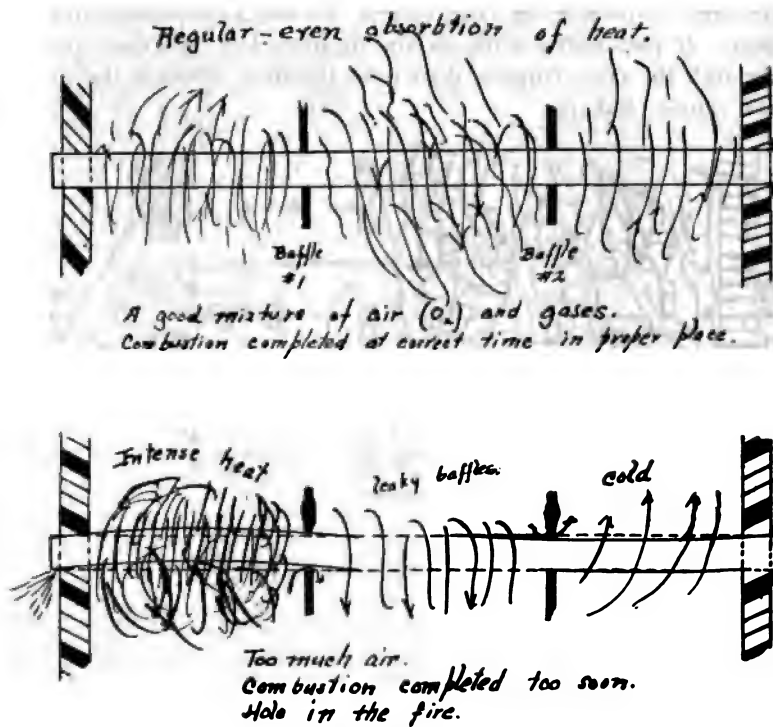 Regular-even absorbtion of heat.
Baffle
#1
Baffle
#2
A good mixture of air (O₂) and gases.
Combustion completed at correct time in proper place.
Intense heat
leaky baffles.
cold
Too much air.
Combustion completed too soon.
Hole in the fire.